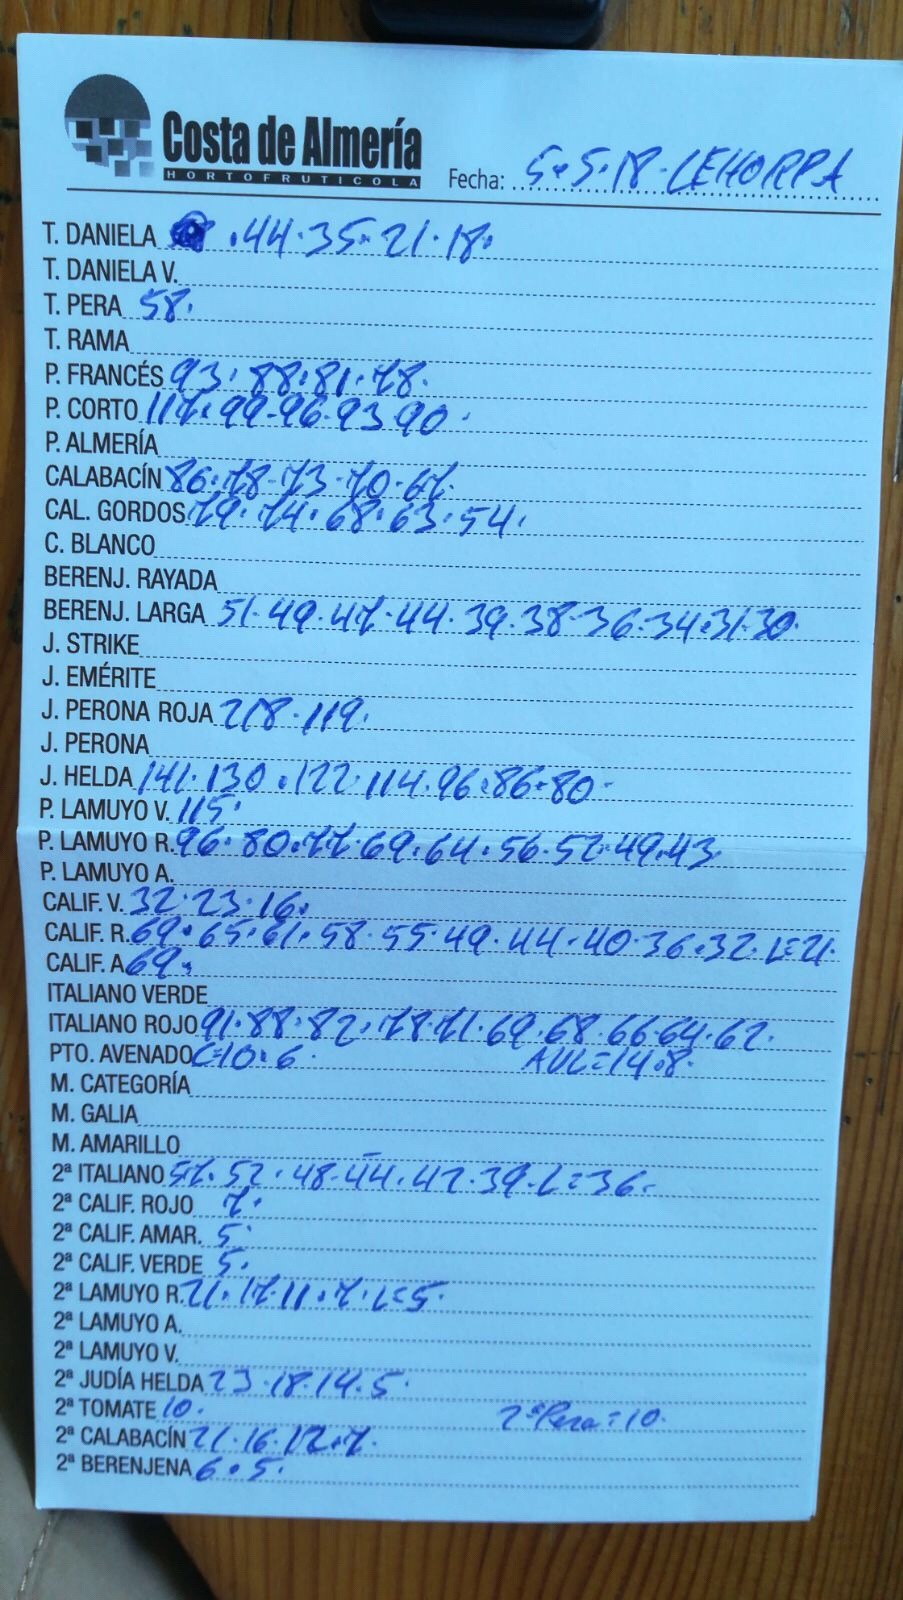 Costa de Almería
HORTOFRUTICOLA
Fecha: 5.5.18. LEHORPA
T. DANIELA .44.35.21.18.
T. DANIELA V.
T. PERA 58.
T. RAMA
P. FRANCÉS 93.88.81.78.
P. CORTO 117.99.96.93 90.
P. ALMERÍA
CALABACÍN 86.78.73.70.67.
CAL. GORDOS 79.74.68.63.54.
C. BLANCO
BERENJ. RAYADA
BERENJ. LARGA 51.49.47.44.39.38.36.34.31.30.
J. STRIKE
J. EMÉRITE
J. PERONA ROJA 218.119.
J. PERONA
J. HELDA 141.130.122.114.96.86.80.
P. LAMUYO V. 115.
P. LAMUYO R. 96.80.77.69.64.56.52.49.43.
P. LAMUYO A.
CALIF. V. 32.23.16.
CALIF. R. 69.65.61.58.55.49.44.40.36.32.L=21.
CALIF. A 69.
ITALIANO VERDE
ITALIANO ROJO 91.88.82.78.71.69.68.66.64.62.
PTO. AVENADO C=10.6. AVL=14.8.
M. CATEGORÍA
M. GALIA
M. AMARILLO
2ª ITALIANO 57.52.48.44.42.39.L=36.
2ª CALIF. ROJO 7.
2ª CALIF. AMAR. 5.
2ª CALIF. VERDE 5.
2ª LAMUYO R. 21.17.11.7.L=5.
2ª LAMUYO A.
2ª LAMUYO V.
2ª JUDÍA HELDA 23.18.14.5.
2ª TOMATE 10. 2ª Pera=10.
2ª CALABACÍN 21.16.12.7.
2ª BERENJENA 6.5.